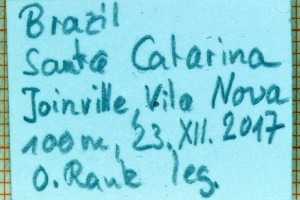 Brazil
Santa Catarina
Joinville, Vila Nova
100m, 23. XII. 2017
O. Rank leg.